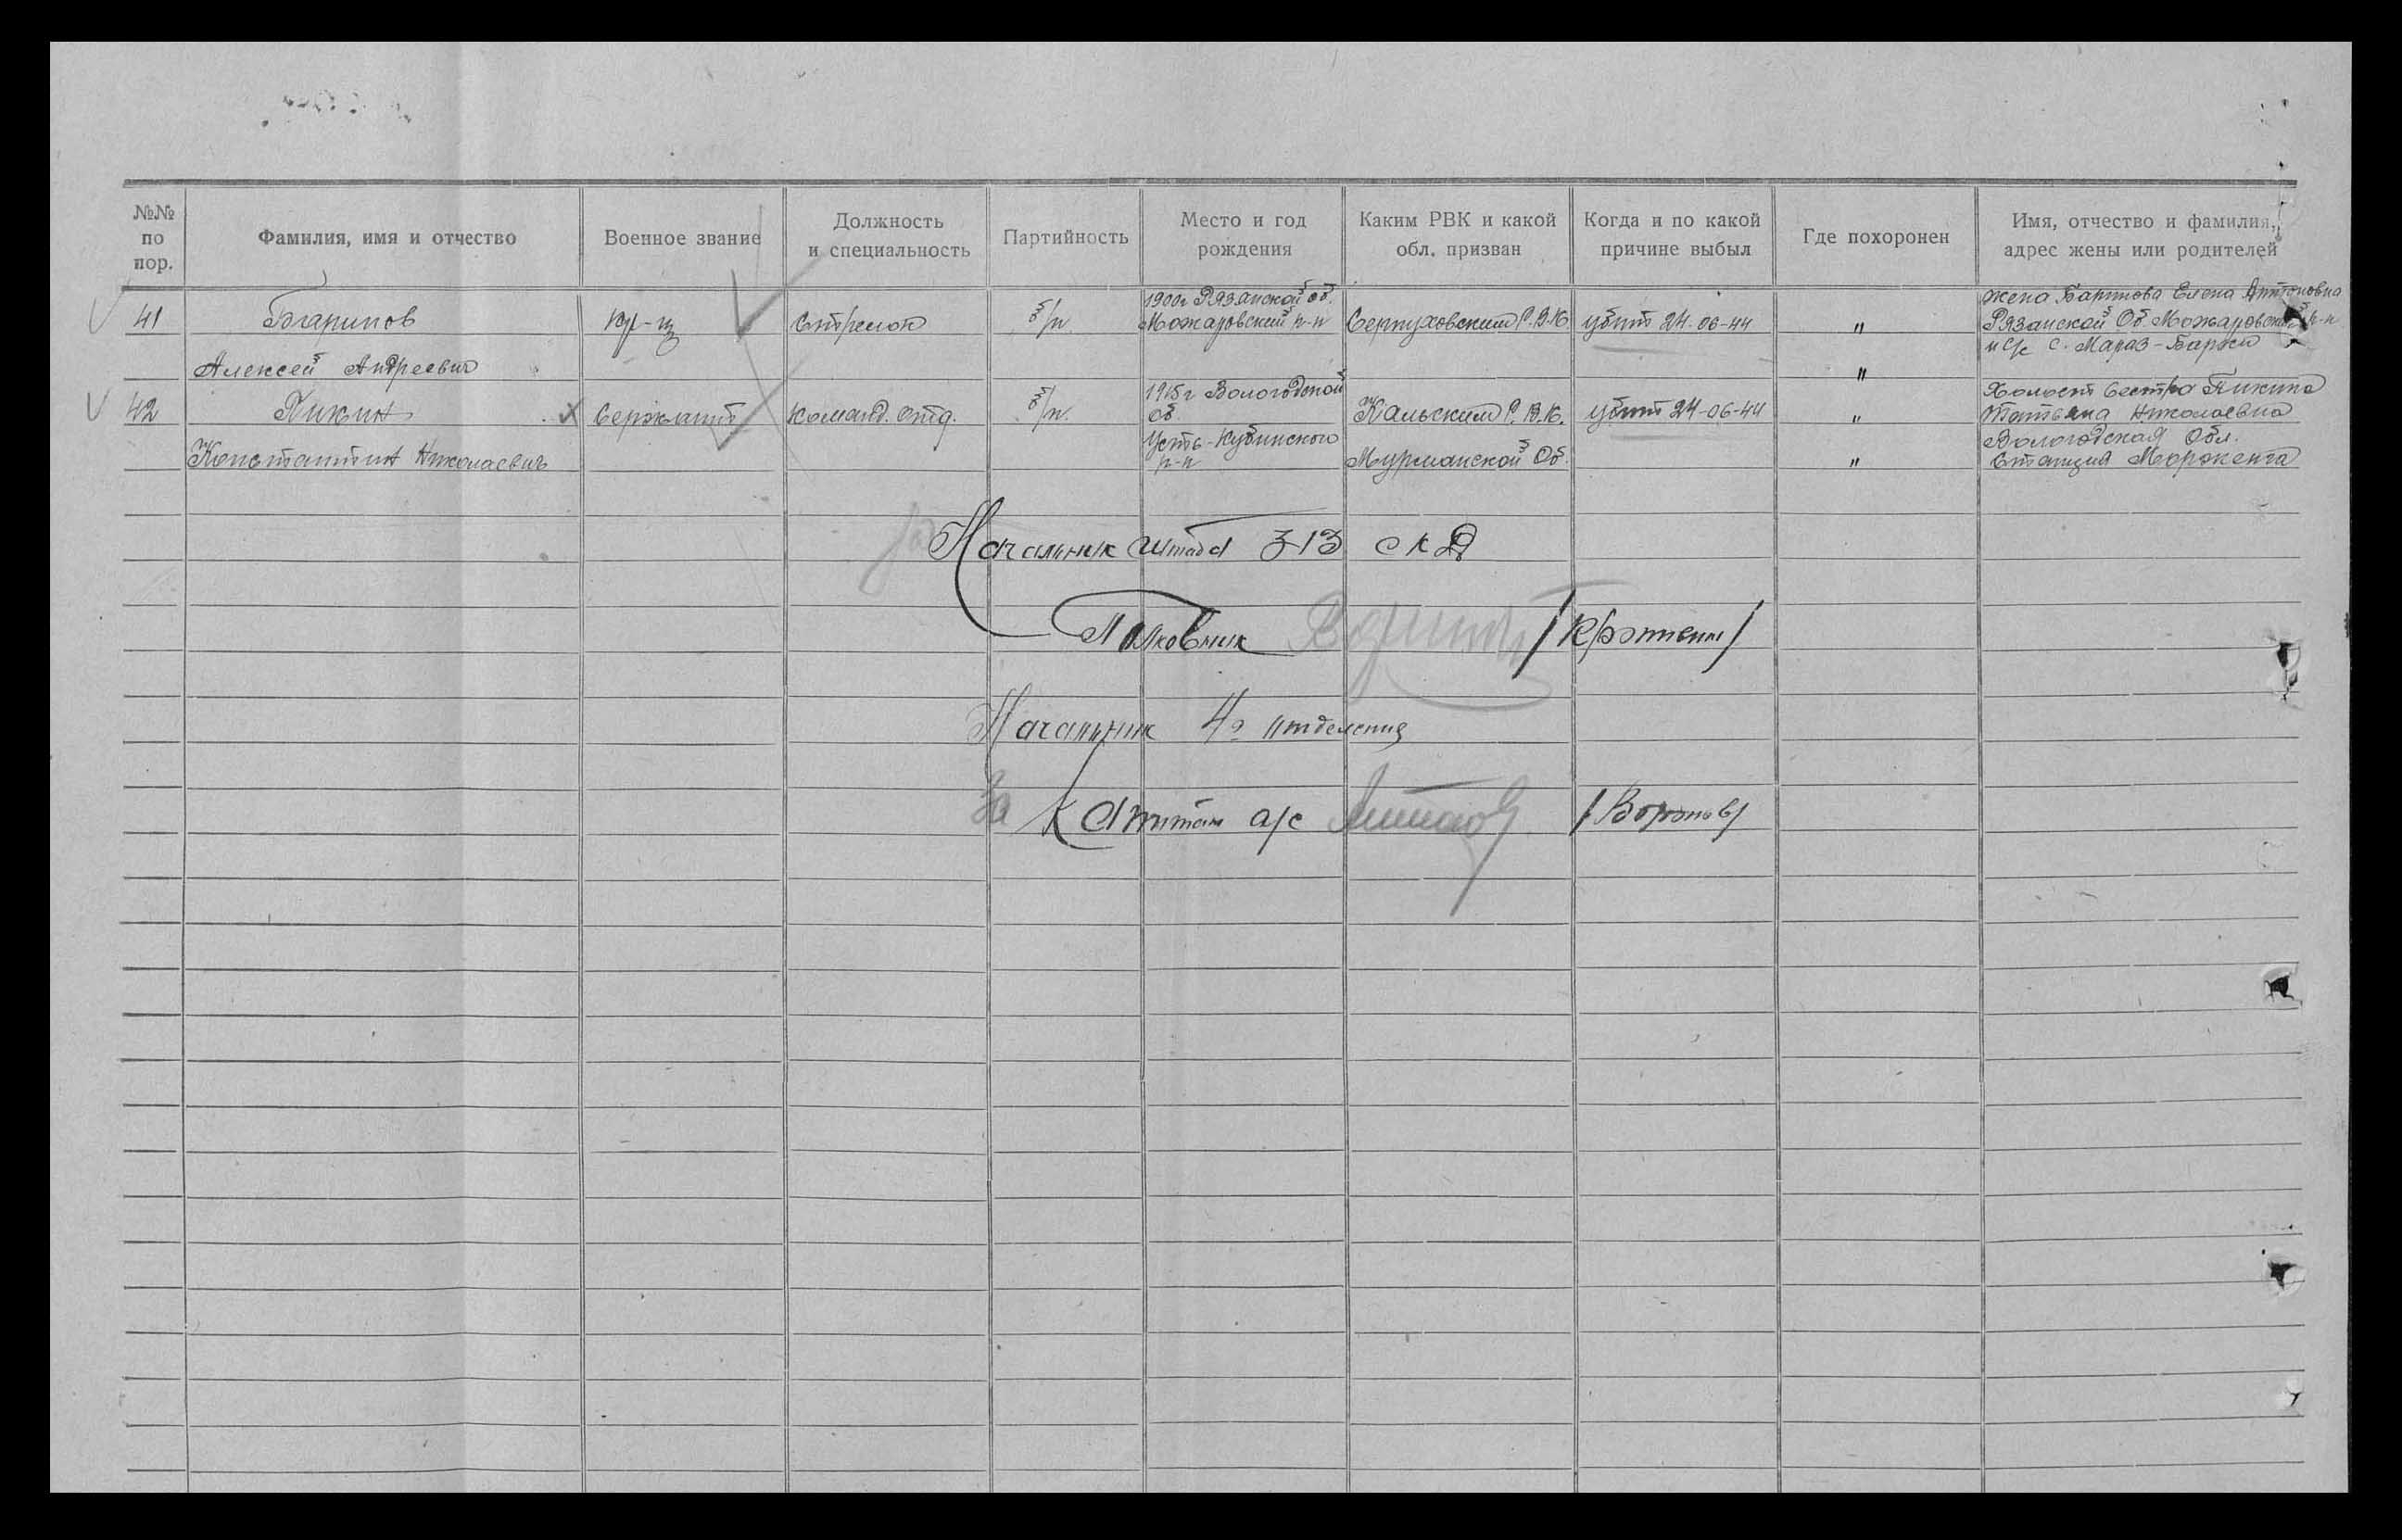 №№ по пор.
Фамилия, имя и отчество
Военное звание
Должность и специальность
Партийность
Место и год рождения
Каким РВК и какой обл. призван
Когда и по какой причине выбыл
Где похоронен
Имя, отчество и фамилия, адрес жены или родителей
41
Баринов
Алексей Андреевич
кр-ц
Стрелок
б/п
1900г Рязанской об.
Можаровский р-н
Серпуховским Р.В.К.
убит 24-06-44
"
"
жена Баринова Елена Антоновна
Рязанской Об. Можаровский р-н
с/с с. Мараз-Баржи
42
Пикин
Константин Николаевич
Сержант
команд. отд.
б/п.
1915г Вологодской
об.
Усть-Кубинского
р-н
Кольским Р.В.К.
Мурманской Об.
убит 24-06-44
"
"
Холост Сестра Пикина
Татьяна Николаевна
Вологодская Обл.
Станция Морженга
Начальник Штаба 313 СКД
Полковник
Начальник 4го отделения
За Капитан а/с /Воронов/